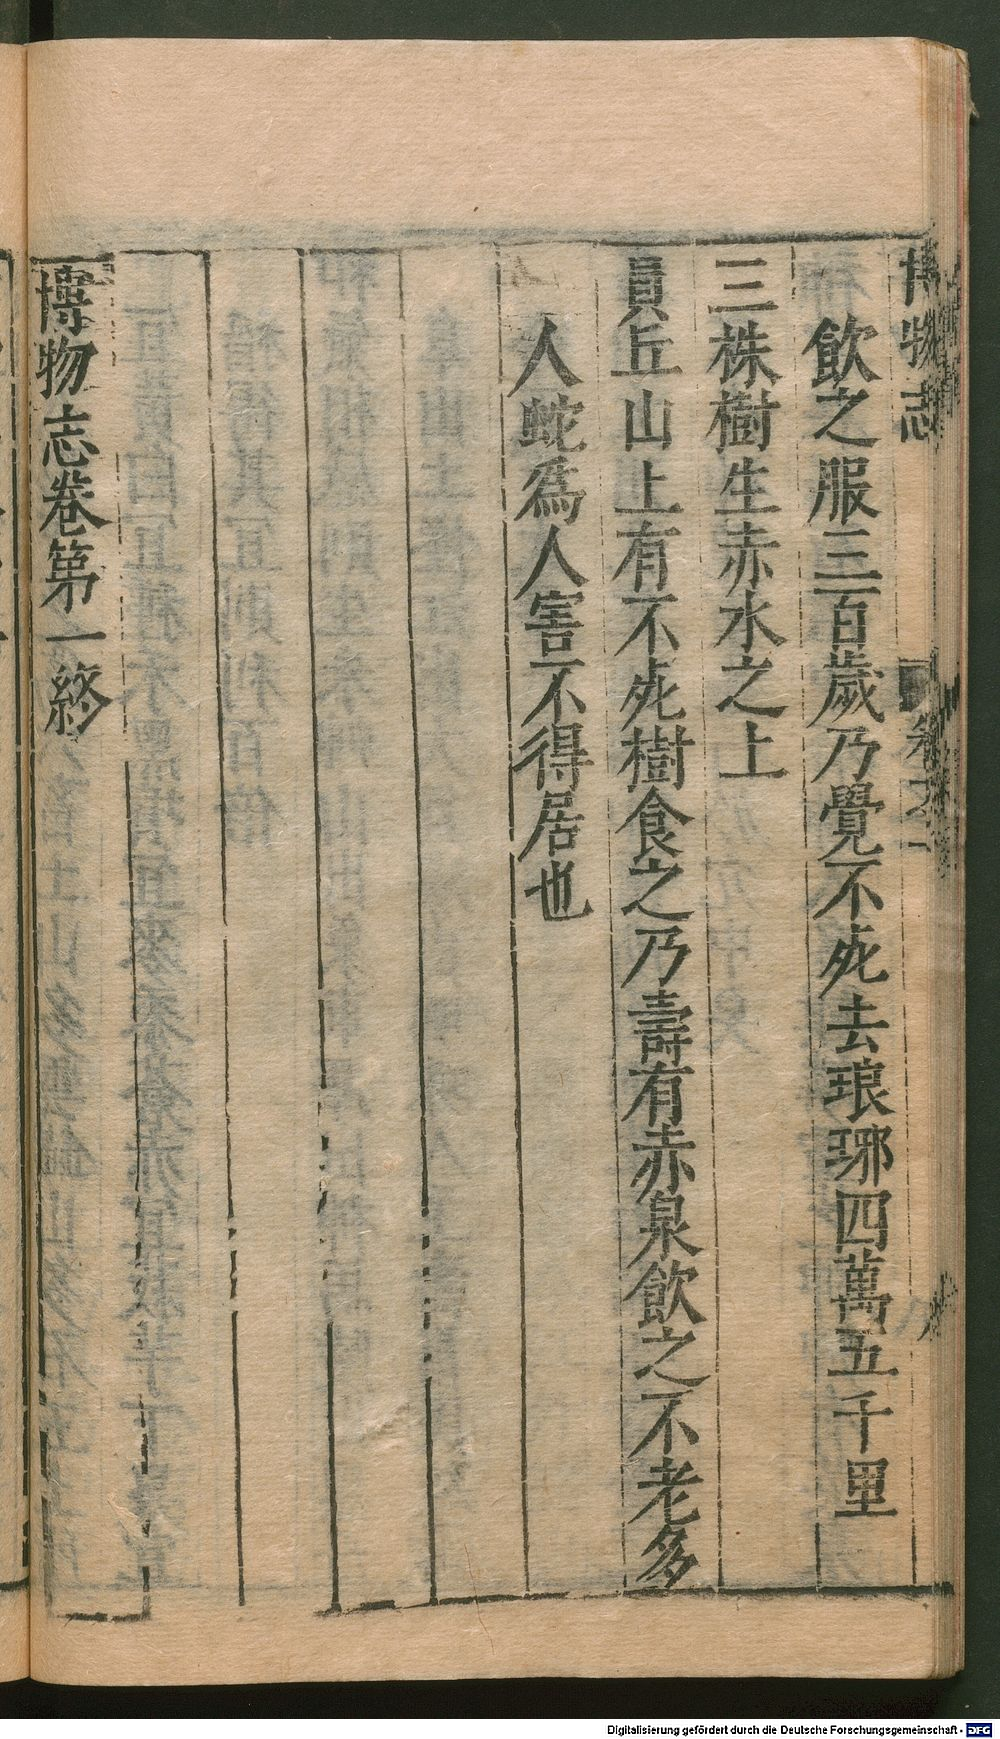 博物志 卷之一
飲之服三百歲乃覺不死去琅琊四萬五千里
三株樹生赤水之上
員丘山上有不死樹食之乃壽有赤泉飲之不老多
人蛇爲人害不得居也
博物志卷第一終
Digitalisierung gefördert durch die Deutsche Forschungsgemeinschaft - DFG